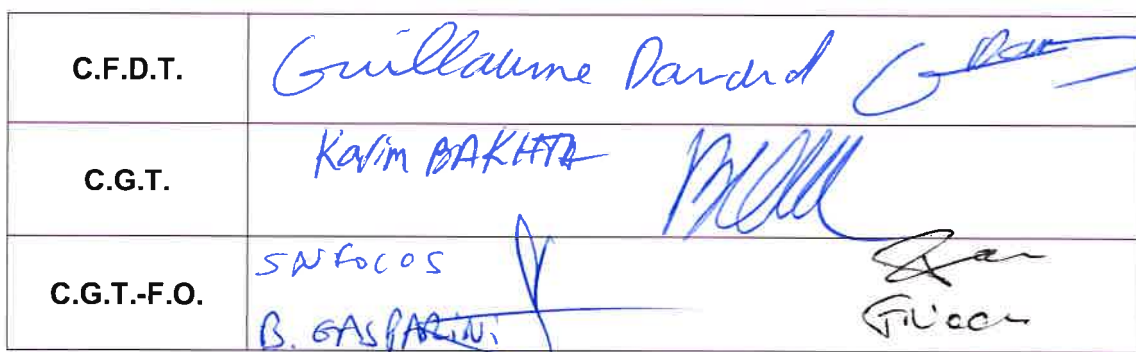 C.F.D.T.
Guillaume
C.G.T.
Karim BAKHTA
C.G.T.-F.O.
SNFOCOS
B. GASPARINI